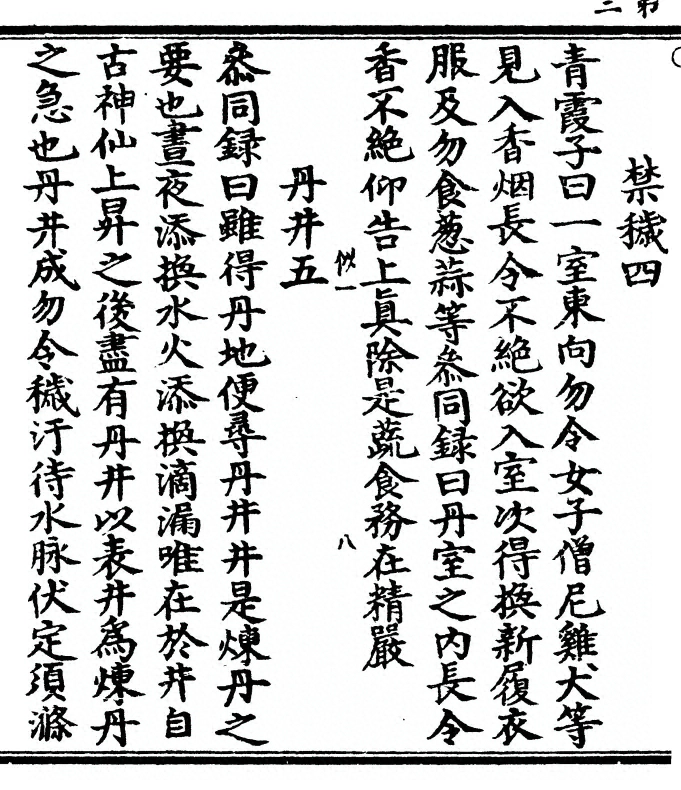 第二
禁穢四
青霞子曰一室東向勿令女子僧尼雞犬等
見入香烟長令不絶欲入室次得換新履衣
服及勿食葱蒜等叅同録曰丹室之内長令
香不絶仰告上眞除是蔬食務在精嚴
似一
八
丹井五
叅同録曰雖得丹地便尋丹井井是煉丹之
要也晝夜添換水火添換滴漏唯在於井自
古神仙上昇之後盡有丹井以表井爲煉丹
之急也丹井成勿令穢汙待水脉伏定須滌